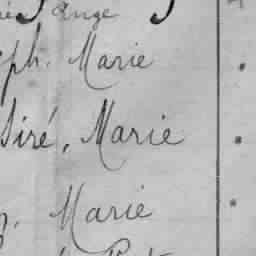 Ange
ph. Marie
siré, Marie
Marie